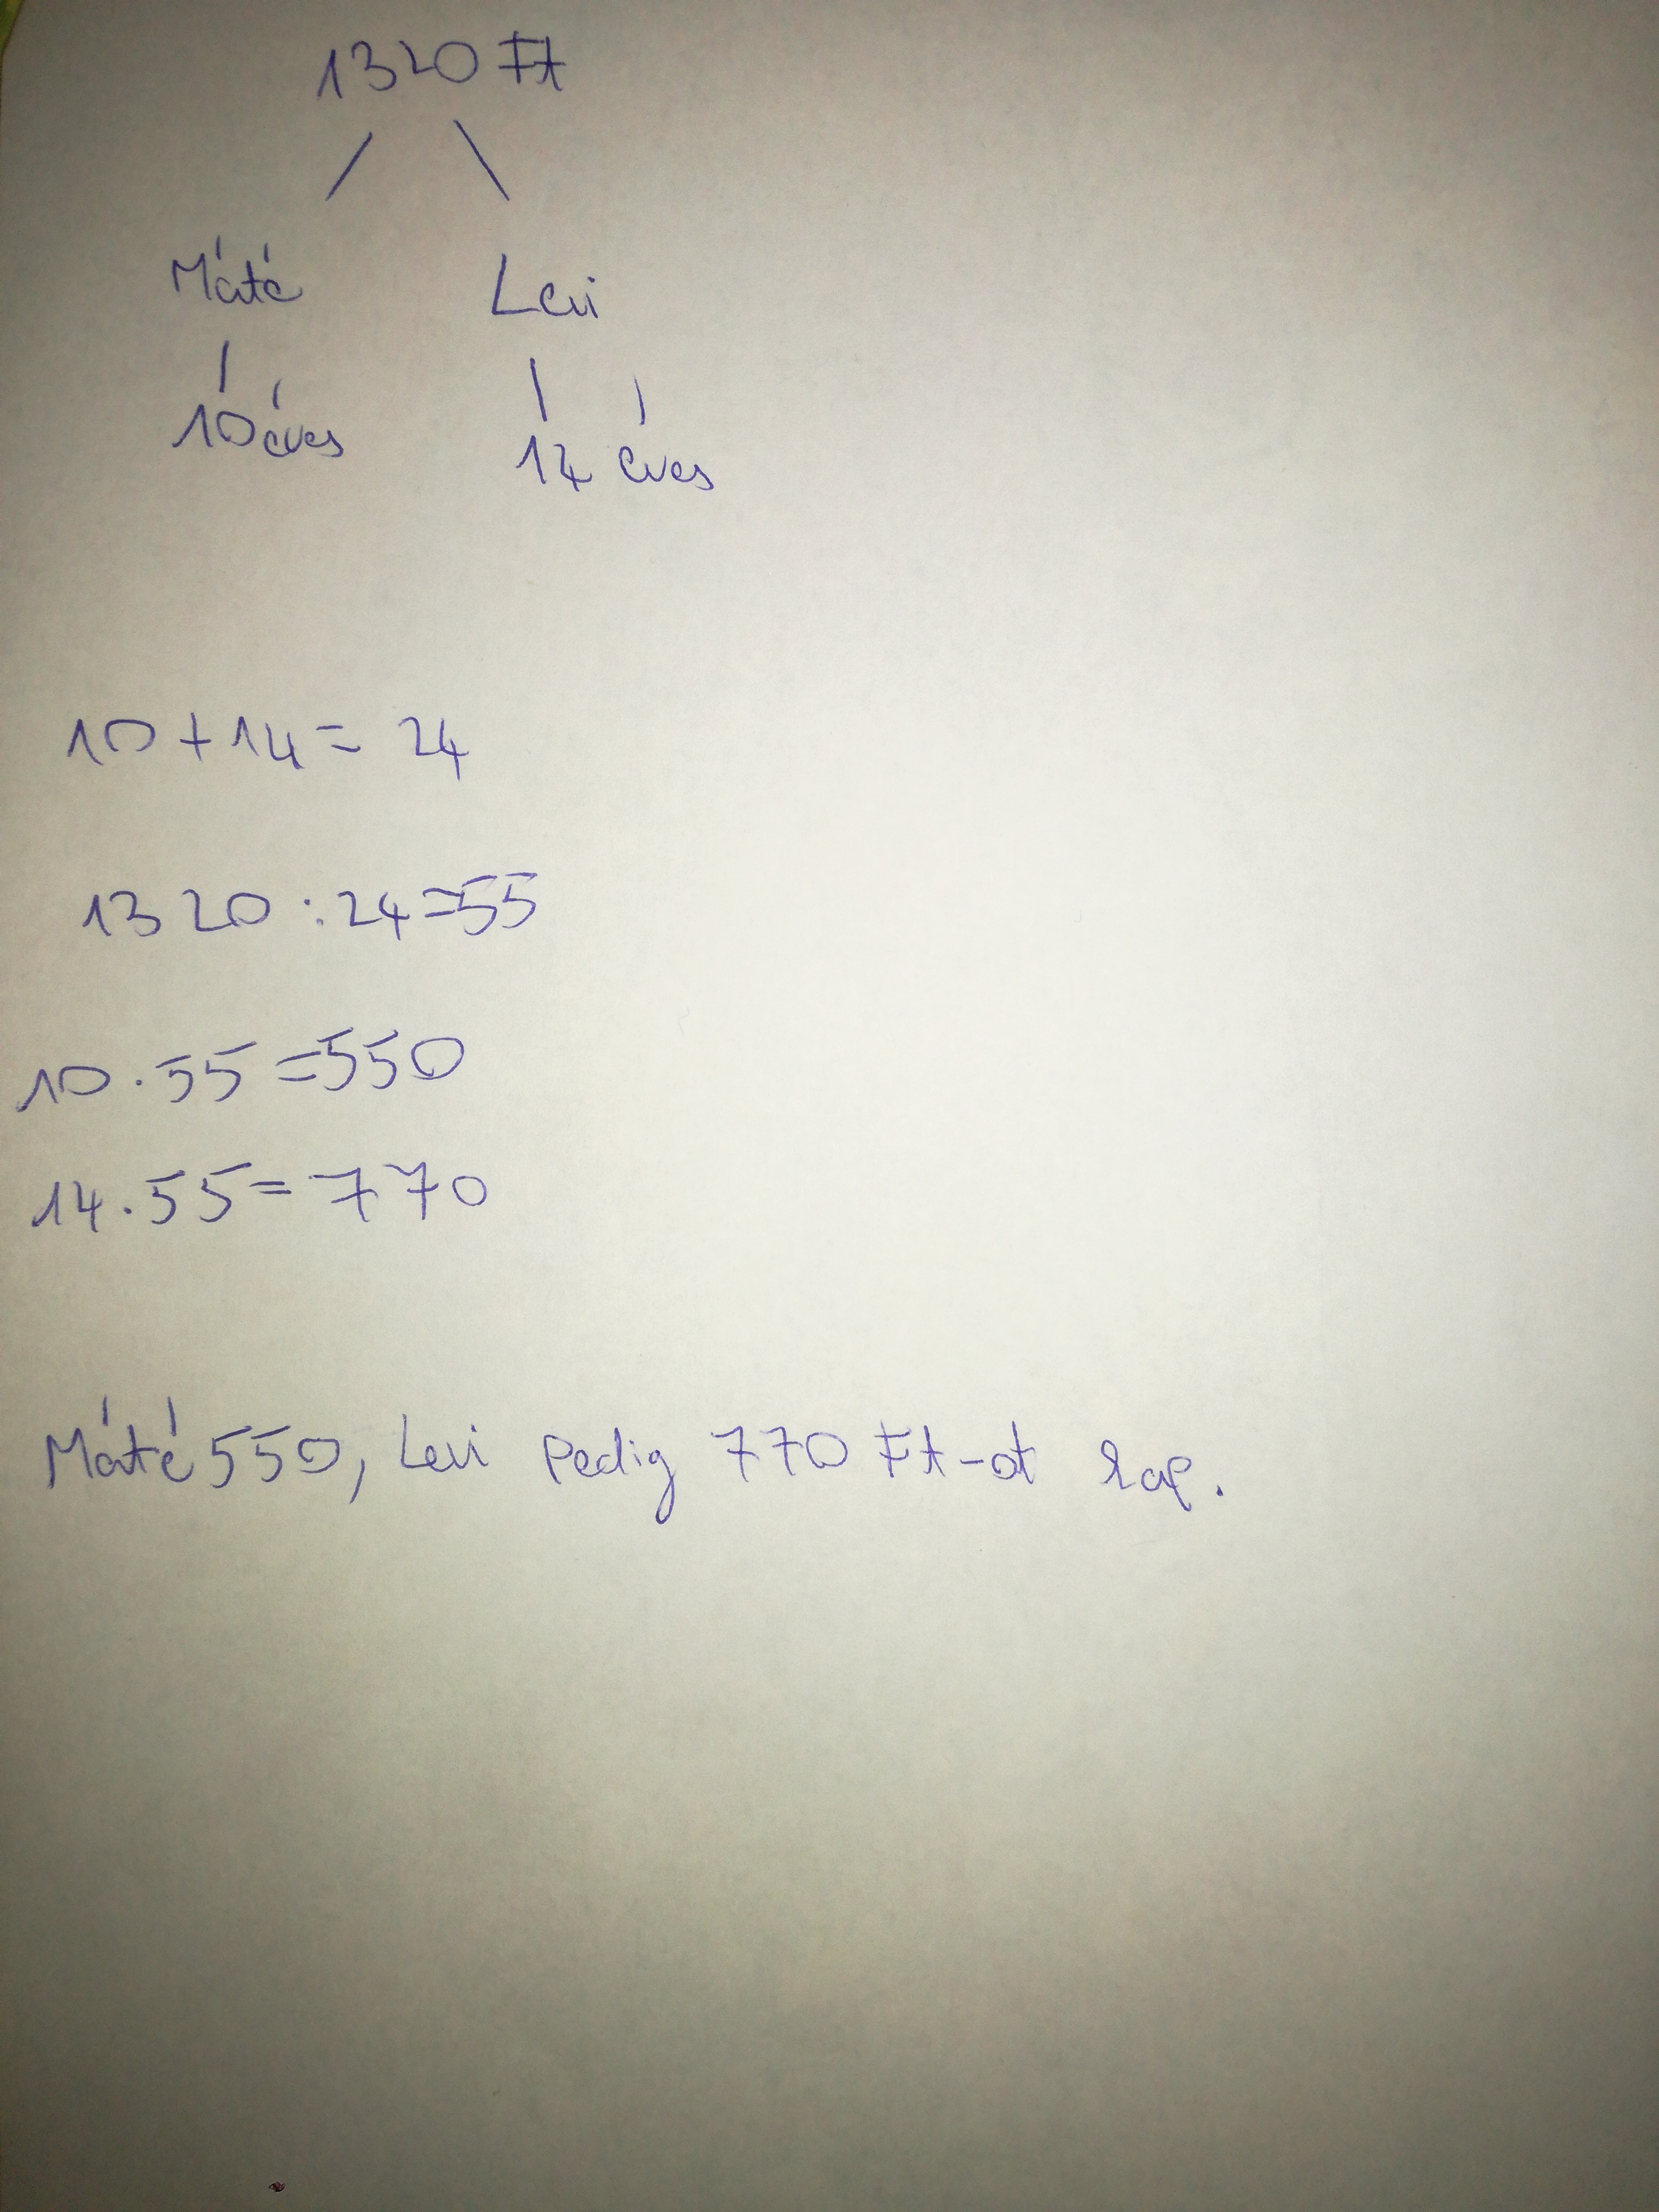 1320 Ft
Máté Levi
10 éves 14 éves
10 + 14 = 24
1320 : 24 = 55
10 · 55 = 550
14 · 55 = 770
Máté 550, Levi pedig 770 Ft-ot kap.